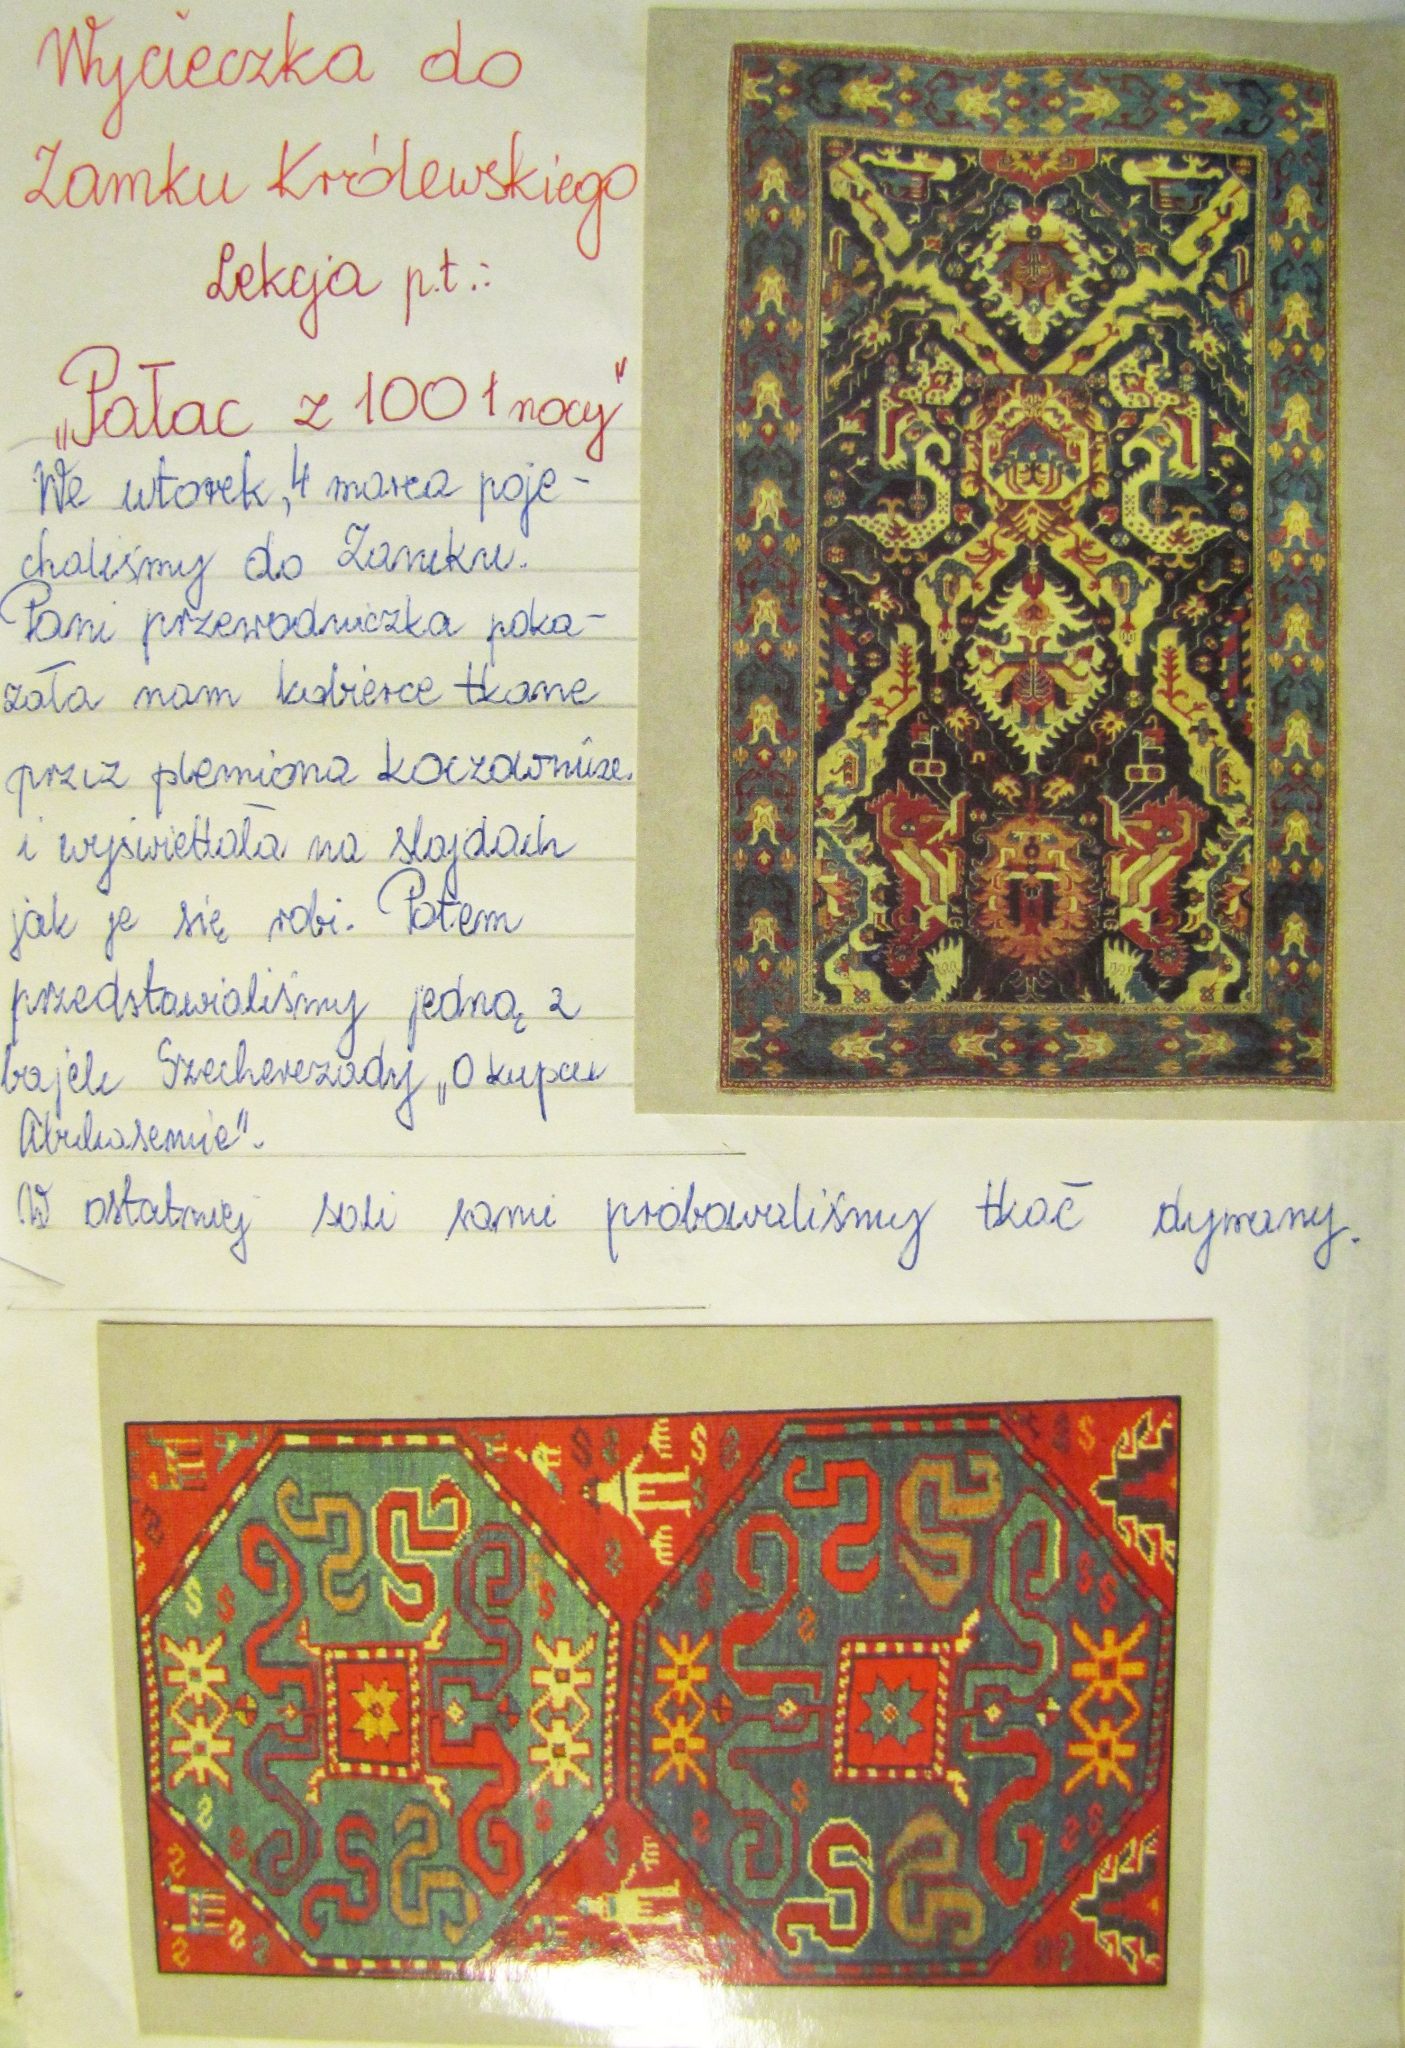 Wycieczka do
Zamku Królewskiego
Lekcja p.t.:
„Pałac z 1001 nocy"
We wtorek, 4 marca poje-
chaliśmy do Zamku.
Pani przewodniczka poka-
zała nam kobierce tkane
przez plemiona koczownicze
i wyświetlała na slajdach
jak je się robi. Potem
przedstawialiśmy jedną z
bajek Szecherezady „O kupcu
Abukasemie".
W ostatniej sali sami próbowaliśmy tkać dywany.